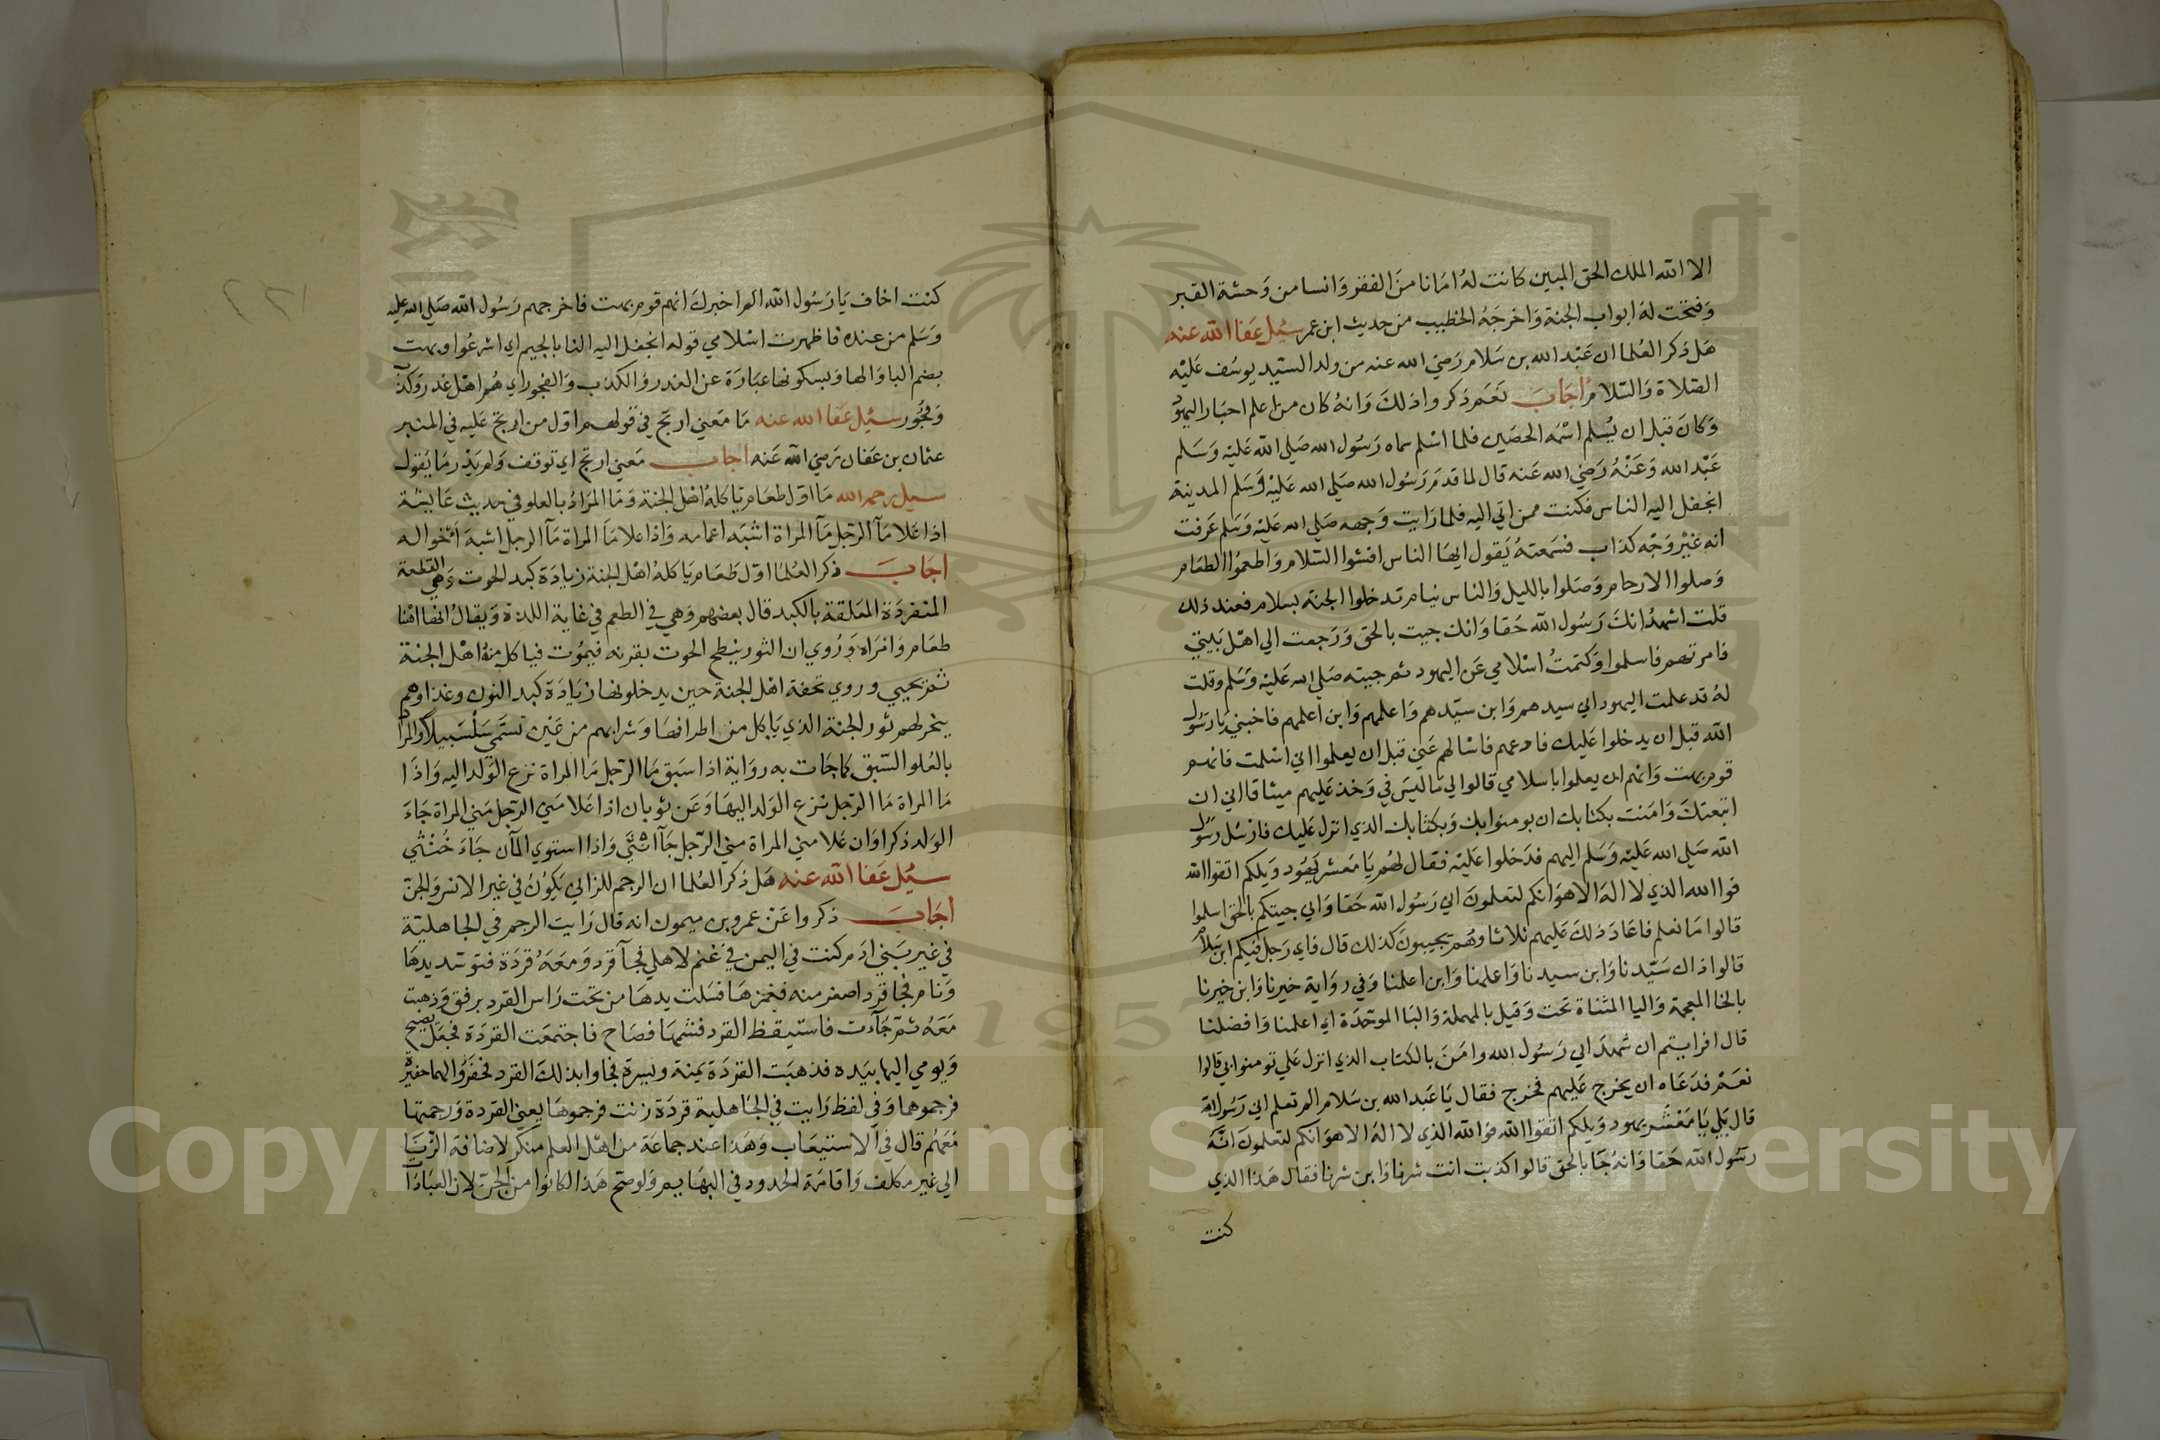 الا الله الملك الحق المبين كانت له امانا من الفقر وانسا من وحشة القبر
وفتحت له ابواب الجنة واخرجه الخطيب من حديث ابن عمر سئل عفا الله عنه
هل ذكر العلما ان عبد الله بن سلام رضي الله عنه من ولد السيد يوسف عليه
الصلاة والسلام اجاب نعم ذكروا ذلك وانه كان من اعلم احبار اليهود
وكان قبل ان يسلم اسمه الحصين فلما اسلم سماه رسول الله صلى الله عليه وسلم
عبد الله وعنه رضي الله عنه قال لما قدم رسول الله صلى الله عليه وسلم المدينة
انجفل اليه الناس فكنت ممن اتى اليه فلما رايت وجهه صلى الله عليه وسلم عرفت
انه غير وجه كذاب فسمعته يقول ايها الناس افشوا السلام واطعموا الطعام
وصلوا الارحام وصلوا بالليل والناس نيام تدخلوا الجنة بسلام فعند ذلك
قلت اشهد انك رسول الله حقا وانك جيت بالحق ورجعت الي اهل بيتي
فامرتهم فاسلموا وكتمت اسلامي عن اليهود ثم جيته صلى الله عليه وسلم وقلت
له قد علمت اليهود اني سيدهم وابن سيدهم واعلمهم وابن اعلمهم فاخبني يا رسول
الله قبل ان يدخلوا عليك فادعهم فاسالهم عني قبل ان يعلموا اني اسلمت فانهم
قوم بهت وانهم ان يعلموا باسلامي قالوا لي ما ليس في وخذ عليهم ميثاقا اني ان
اتبعتك وامنت بكتابك ان يومنوا بك وبكتابك الذي انزل عليك فارسل رسول
الله صلى الله عليه وسلم اليهم فدخلوا عليه فقال لهم يا معشر يهود ويلكم اتقوا الله
فوا الله الذي لا اله الا هو انكم لتعلمون اني رسول الله حقا واني جيتكم بالحق اسلموا
قالوا ما نعلم فاعاد ذلك عليهم ثلاثا وهم يجيبون كذلك قال فاي رجل فيكم ابن سلام
قالوا ذاك سيدنا وابن سيدنا واعلمنا وابن اعلمنا وفي رواية خيرنا وابن خيرنا
بالخا المعجمة واليا المثناة تحت وقيل بالمهملة والبا الموحدة اي اعلمنا وافضلنا
قال افرايتم ان شهد اني رسول الله وامن بالكتاب الذي انزل علي تومنوا بي قالوا
نعم فدعاه ان يخرج عليهم فخرج فقال يا عبد الله بن سلام الم تعلم اني رسول الله
قال بلي يا معشر يهود ويلكم اتقوا الله فو الله الذي لا اله الا هو انكم لتعلمون انه
رسول الله حقا وانه جا بالحق قالوا كذبت انت شرنا وابن شرنا فقال هذا الذي
كنت
كنت اخاف يا رسول الله الم اخبرك انهم قوم بهت فاخرجهم رسول الله صلى الله عليه
وسلم من عنده فاظهرت اسلامي قوله انجفل اليه النا بالجيم اي اسرعوا وبهت
بضم البا والها وبسكونها عبارة عن الغدر والكذب والفجور اي هم اهل غدر وكذب
وفجور سئل عفا الله عنه ما معني ارتج في قولهم اول من ارتج عليه في المنبر
عثمان بن عفان رضي الله عنه اجاب معني ارتج اي توقف ولم يدر ما يقول
سيل رحمه الله ما اول طعام ياكله اهل الجنة وما المراد بالعلو في حديث عايشة
اذا علا ما الرجل ما المراة اشبه اعمامه واذا علا ما المراة ما الرجل اشبه اخواله
اجاب ذكر العلما اول طعام ياكله اهل الجنة زيادة كبد الحوت وهي القطعة
المنفردة المعلقة بالكبد قال بعضهم وهي في الطعم في غاية اللذة ويقال انها اهنا
طعام وامراه وروي ان الثور ينطح الحوت بقرنه فيموت فياكل منه اهل الجنة
ثم يحيي وروي تحفة اهل الجنة حين يدخلونها زيادة كبد النون وغداوهم
ينحر لهم ثور الجنة الذي ياكل من اطرافها وشرابهم من عين تسمي سلسبيلا والمراد
بالعلو السبق كما جات به رواية اذا سبق ما الرجل ما المراة نزع الولد اليه واذا
ما المراة ما الرجل نزع الولد اليها وعن ثوبان اذا علا مني الرجل مني المراة جاء
الولد ذكرا وان علا مني المراة مني الرجل جا انثي واذا استوي المان جاء خنثي
سئل عفا الله عنه هل ذكر العلما ان الرجم للزاني يكون في غير الانس والجن
اجاب ذكروا عن عمرو بن ميمون انه قال رايت الرجم في الجاهلية
في غير بني ادم كنت في اليمن في غنم لاهلي فجآ قرد ومعه قردة فتوسد يدها
ونام فجا قرد اصغر منه فغمزها فسلت يدها من تحت راس القرد برفق وذهبت
معه ثم جآءت فاستيقظ القرد فشمها فصاح فاجتمعت القردة فجعل يصيح
ويومي اليها بيده فذهبت القردة يمنة ويسرة فجاوا بذلك القرد فحفروا لهما حفيرة
فرجموهما وفي لفظ رايت في الجاهلية قردة زنت فرجموها يعني القردة ورجمتها
معهم قال في الاستيعاب وهذا عند جماعة من اهل العلم منكر لاضافة الزنا
الي غير مكلف واقامة الحدود في البهايم ولو صح هذا لكانوا من الجن لان العبادات
Copyright © King Saud University
1957